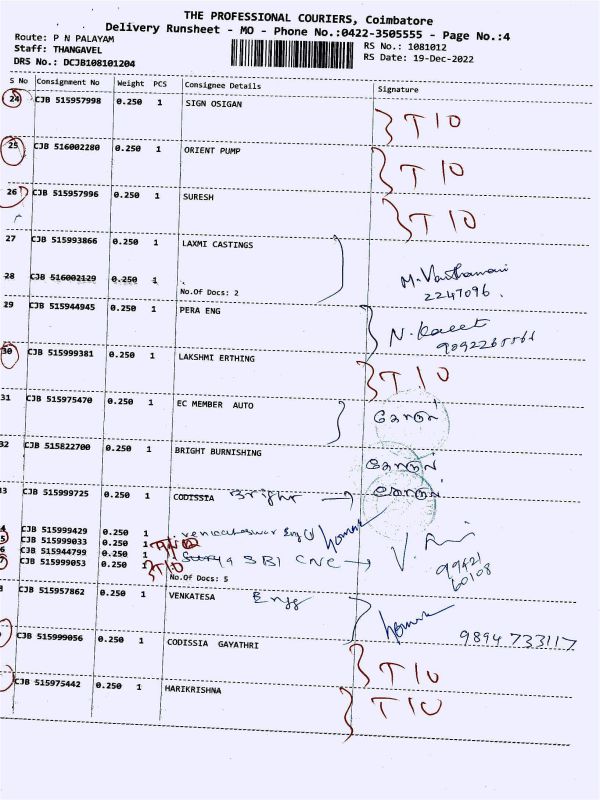 THE PROFESSIONAL COURIERS, Coimbatore
Delivery Runsheet - MO - Phone No.:0422-3505555 - Page No.:4
Route: P N PALAYAM
RS No.: 1081012
Staff: THANGAVEL
RS Date: 19-Dec-2022
DRS No.: DCJB108101204
S No Consignment No Weight PCS Consignee Details Signature
24 CJB 515957998 0.250 1 SIGN OSIGAN T 10
25 CJB 516002280 0.250 1 ORIENT PUMP T 10
26 CJB 515957996 0.250 1 SURESH T 10
27 CJB 515993866 0.250 1 LAXMI CASTINGS
28 CJB 516002129 0.250 1
No.Of Docs: 2
2247096
29 CJB 515944945 0.250 1 PERA ENG
30 CJB 515999381 0.250 1 LAKSHMI ERTHING T 10
31 CJB 515975470 0.250 1 EC MEMBER AUTO
32 CJB 515822700 0.250 1 BRIGHT BURNISHING
3 CJB 515999725 0.250 1 CODISSIA Bright
CJB 515999429 0.250 1
5 CJB 515999033 0.250 1
6 CJB 515944799 0.250 1 SBI CNC
CJB 515999053 0.250 1 T10
No.Of Docs: 5
99421
60108
CJB 515957862 0.250 1 VENKATESA Engg
9894 733117
CJB 515999056 0.250 1 CODISSIA GAYATHRI T 10
CJB 515975442 0.250 1 HARIKRISHNA T 10